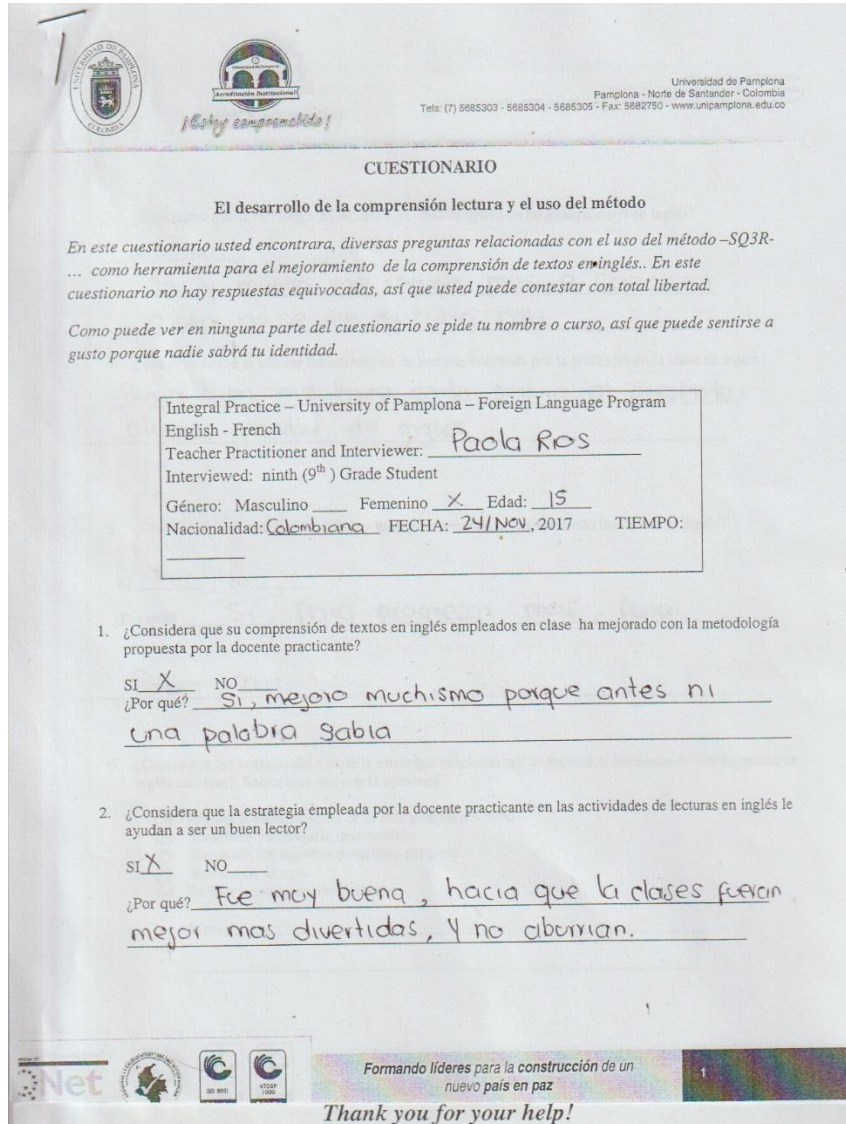 UNIVERSIDAD DE PAMPLONA
COLOMBIA
Acreditación Institucional
¡Estoy comprometido!
Universidad de Pamplona
Pamplona - Norte de Santander - Colombia
Tels: (7) 5685303 - 5685304 - 5685305 - Fax: 5682750 - www.unipamplona.edu.co
CUESTIONARIO
El desarrollo de la comprensión lectura y el uso del método
En este cuestionario usted encontrara, diversas preguntas relacionadas con el uso del método –SQ3R-
… como herramienta para el mejoramiento de la comprensión de textos en inglés.. En este
cuestionario no hay respuestas equivocadas, así que usted puede contestar con total libertad.
Como puede ver en ninguna parte del cuestionario se pide tu nombre o curso, así que puede sentirse a
gusto porque nadie sabrá tu identidad.
Integral Practice – University of Pamplona – Foreign Language Program
English - French
Teacher Practitioner and Interviewer: Paola Rios
Interviewed: ninth (9th ) Grade Student
Género: Masculino ____ Femenino X Edad: 15
Nacionalidad: Colombiana FECHA: 24/Nov, 2017 TIEMPO:
________
1. ¿Considera que su comprensión de textos en inglés empleados en clase ha mejorado con la metodología
propuesta por la docente practicante?
SI X NO____
¿Por qué? Si, mejoro muchismo porque antes ni
una palabra sabia
2. ¿Considera que la estrategia empleada por la docente practicante en las actividades de lecturas en inglés le
ayudan a ser un buen lector?
SI X NO____
¿Por qué? Fue muy buena, hacia que la clases fueran
mejor mas divertidas, y no aburrian.
Net
ISO 9001
NTCGP 1000
Formando líderes para la construcción de un
nuevo país en paz
1
Thank you for your help!